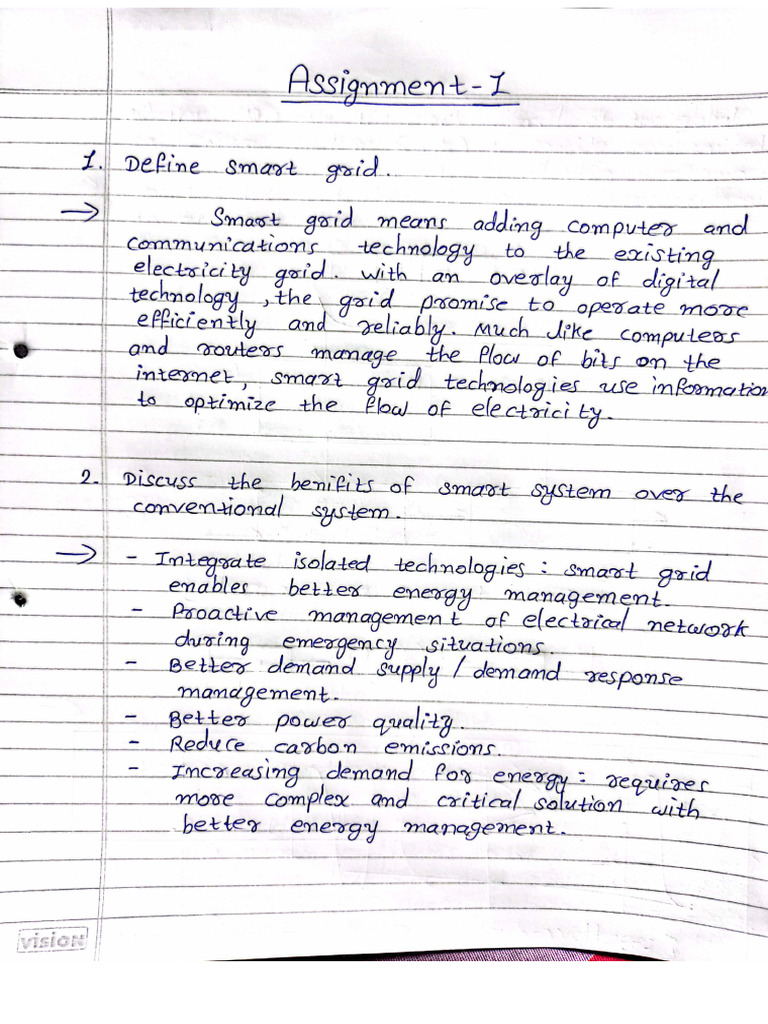 Assignment-1
1. Define smart grid.
→ Smart grid means adding computer and
communications technology to the existing
electricity grid. with an overlay of digital
technology, the grid promise to operate more
efficiently and reliably. Much like computers
and routers manage the flow of bits on the
internet, smart grid technologies use information
to optimize the flow of electricity.
2. Discuss the benifits of smart system over the
conventional system.
→ - Integrate isolated technologies: smart grid
enables better energy management.
- Proactive management of electrical network
during emergency situations.
- Better demand supply / demand response
management.
- Better power quality.
- Reduce carbon emissions.
- Increasing demand for energy: requires
more complex and critical solution with
better energy management.
VISION